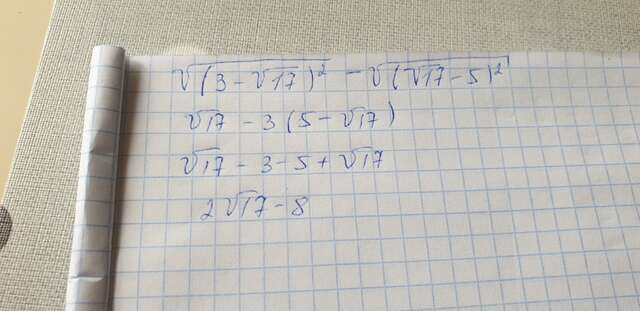 √(3-√17)² - √(√17-5)²
√17 - 3 (5-√17)
√17 - 3 - 5 + √17
2√17 - 8